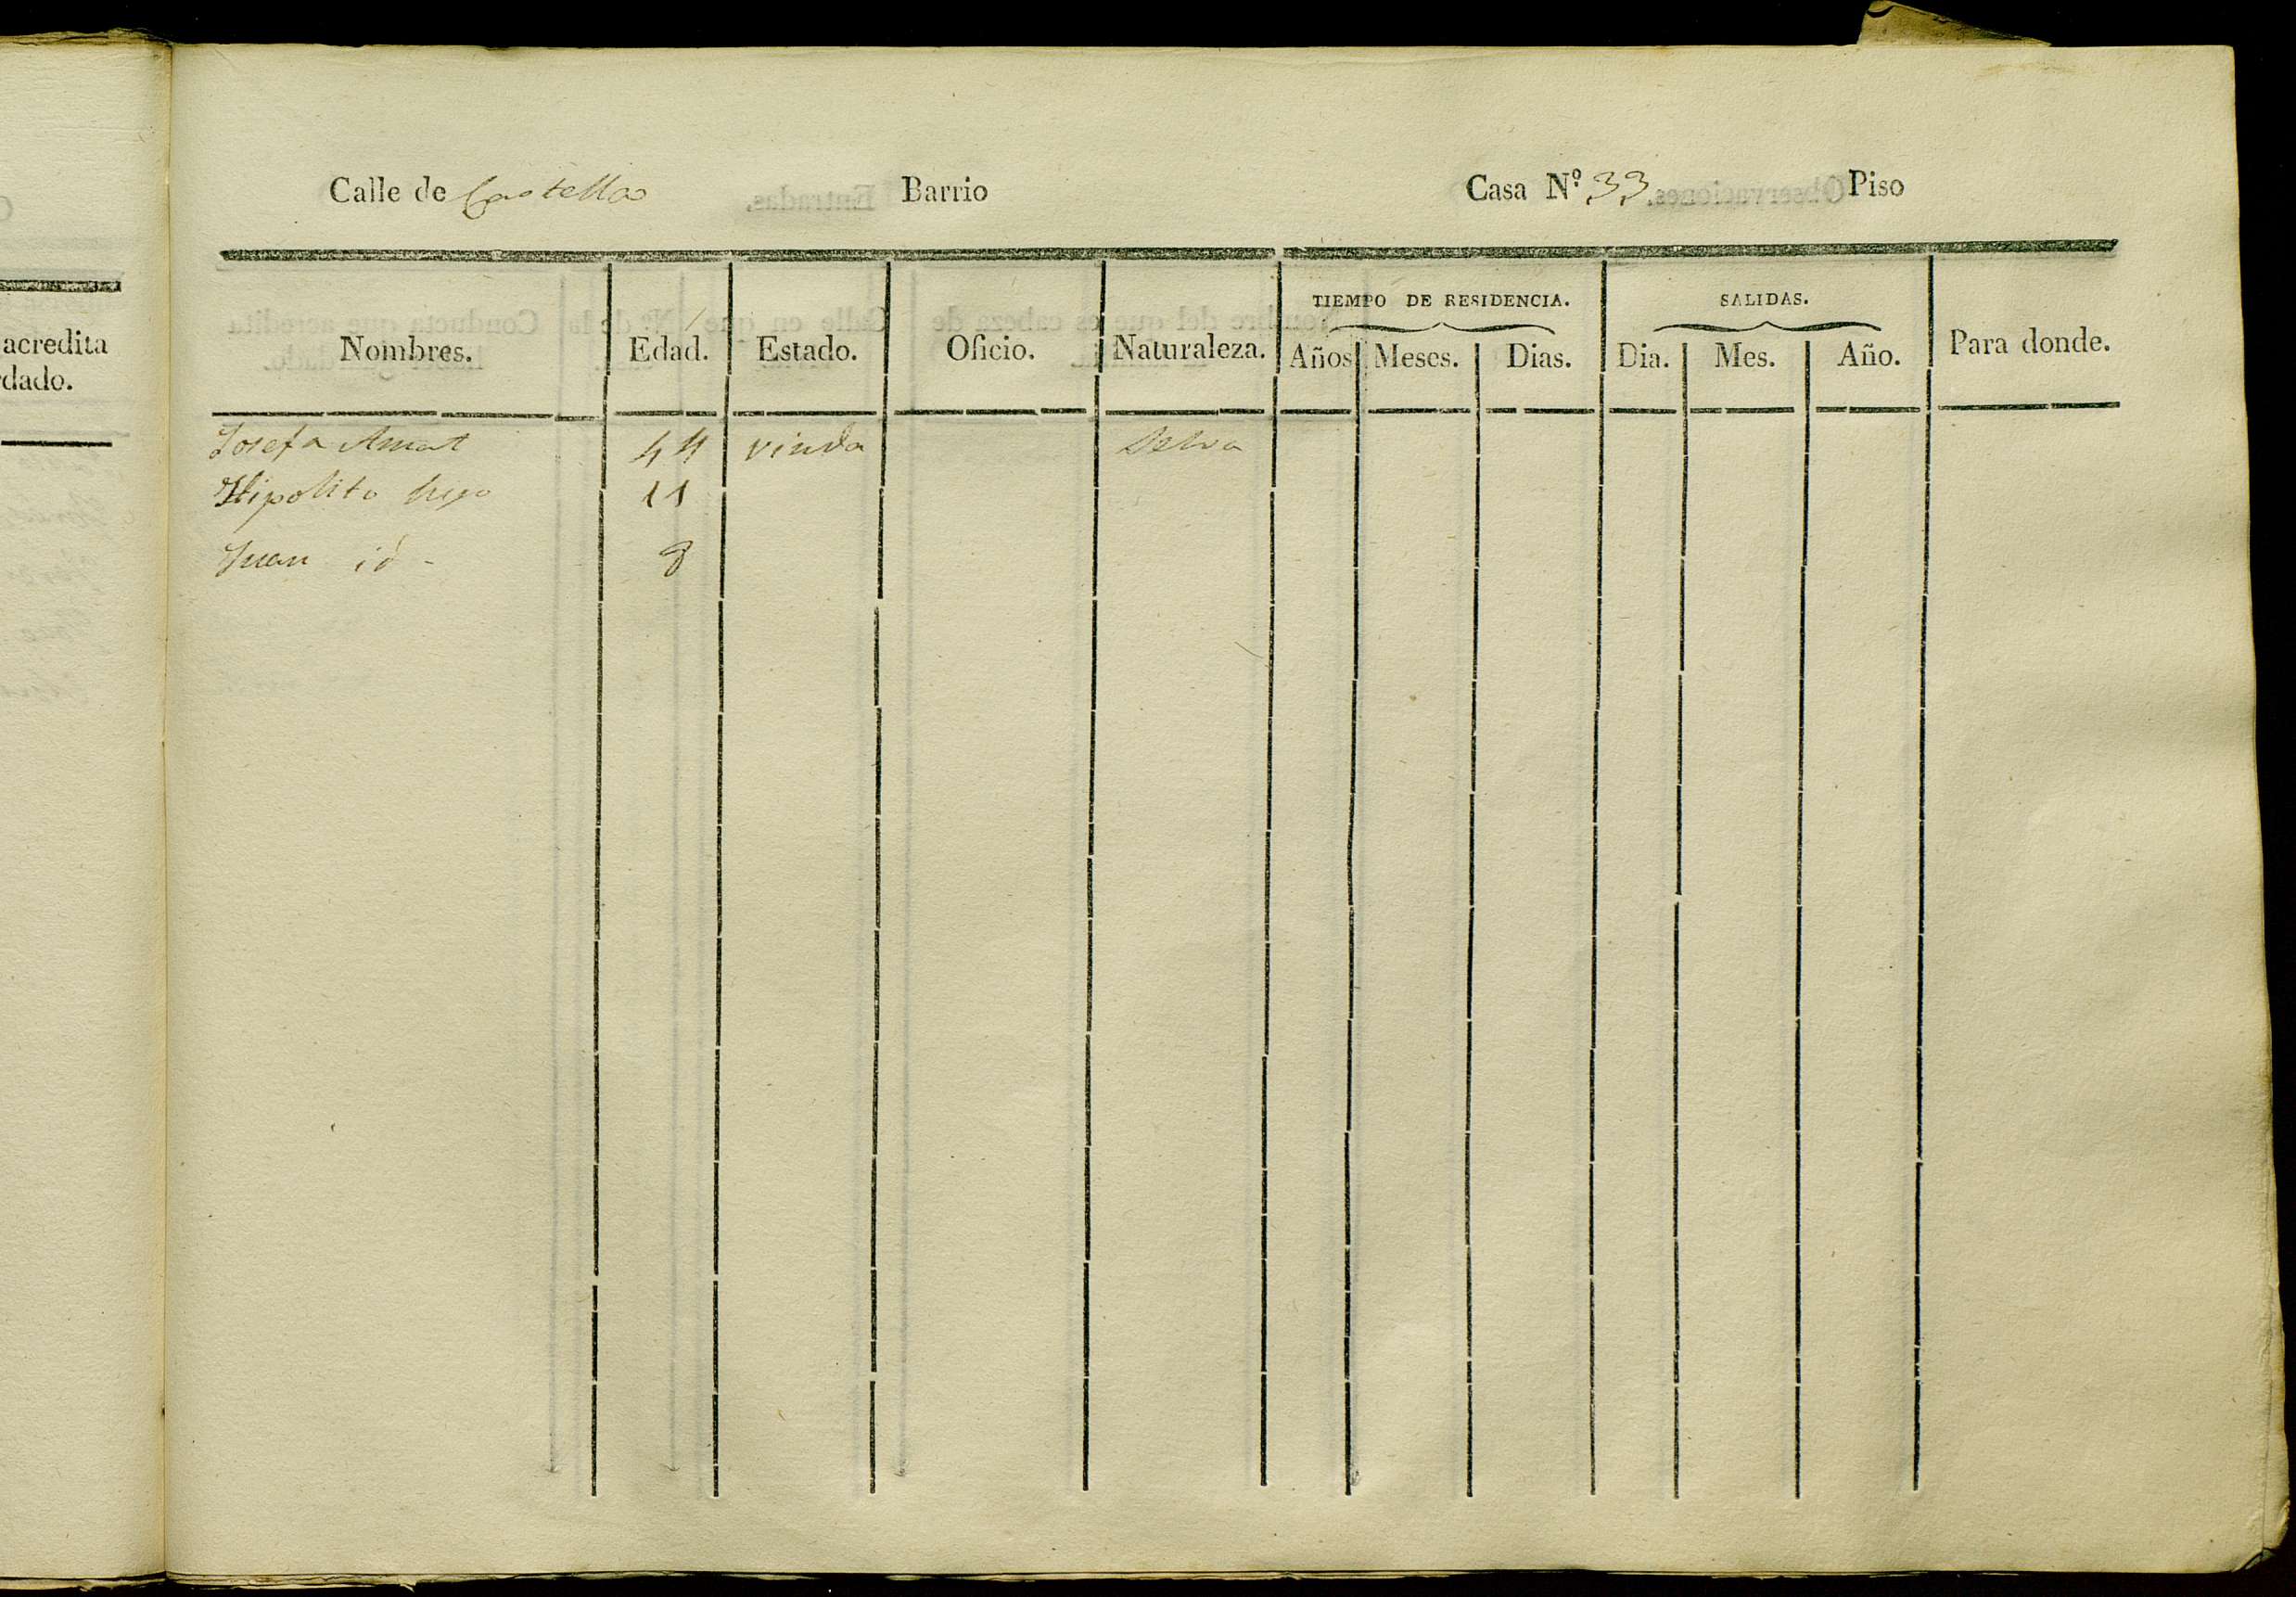 Calle de Castellar Barrio Casa Nº 33 Piso
acredita
dado.
TIEMPO DE RESIDENCIA. SALIDAS.
Nombres. Edad. Estado. Oficio. Naturaleza. Años Meses. Dias. Dia. Mes. Año. Para donde.
Josefa Amat 44 viuda Selva
Hipolito hijo 11
Juan id 8